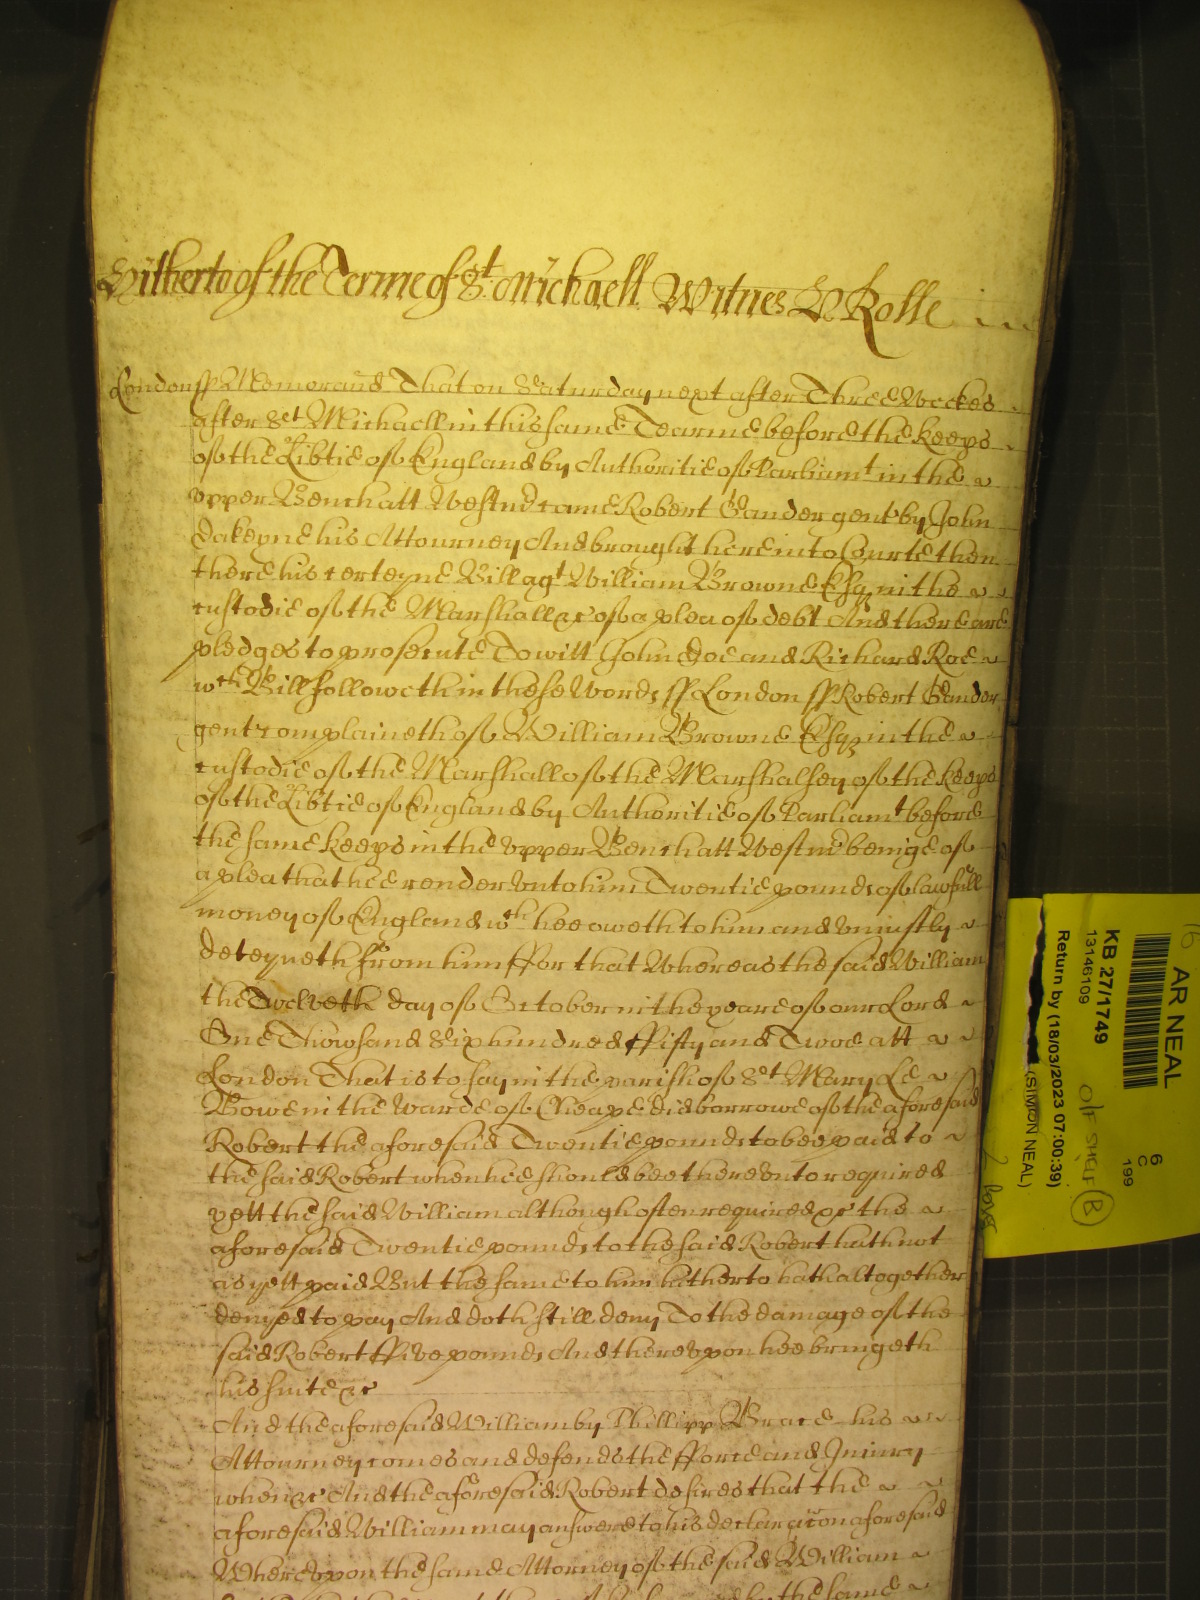 Hitherto of the Terme of St. Michaell Witnes H Rolle
London ss Memorand That on Saturday next after Three Weekes
after St Michaell in this same Tearme before the keeps
of the Libtie of England by Authoritie of Parliamt in the
vpper Bench att Westmr came Robert Gander gent by John
Dakeyne his Attourney And brought here into Courte then
there his certeyne Bill agt William Browne Esqr in the
custodie of the Marshall &c of a plea of debt And there are
pledges to prosecute To witt John Doe and Richard Roe
wch Bill followeth in these Words ss London ss Robert Gander
gent complaineth of William Browne Esqr in the
custodie of the Marshall of the Marshalsey of the keeps
of the Libtie of England by Authoritie of Parliamt before
the same keeps in the vpper Bench att Westmr beinge of
a plea that hee render vnto him Twentie pounds of lawfull
money of England wch hee oweth to him and vniustly
deteyneth from him ffor that Whereas the said William
the Twelveth day of October in the yeare of our Lord
One Thowsand Six hundred ffifty and Twoe att
London That is to say in the parish of St Mary Le
Bowe in the Warde of Cheape did borrowe of the aforesaid
Robert the aforesaid Twentie pounds to bee paid to
the said Robert when hee should bee therevnto required
yett the said William although often required &c the
aforesaid Twentie pounds to the said Robert hath not
as yett paid But the same to him hitherto hath altogether
denyed to pay And doth still deny To the damage of the
said Robert ffive pounds And therevpon hee bringeth
his suite &c
And the aforesaid William by Phillipp Brace his
Attourney comes and defends the fforce and Iniury
when &c And the aforesaid Robert desires that the
aforesaid William may answere to his declaracon aforesaid
Wherevpon the same Attorney of the said William
the same
AR NEAL
16
KB 27/1749
13146109
Return by (18/03/2023 07:00:39)
(SIMON NEAL)
O/F SHELF B
6
C
199